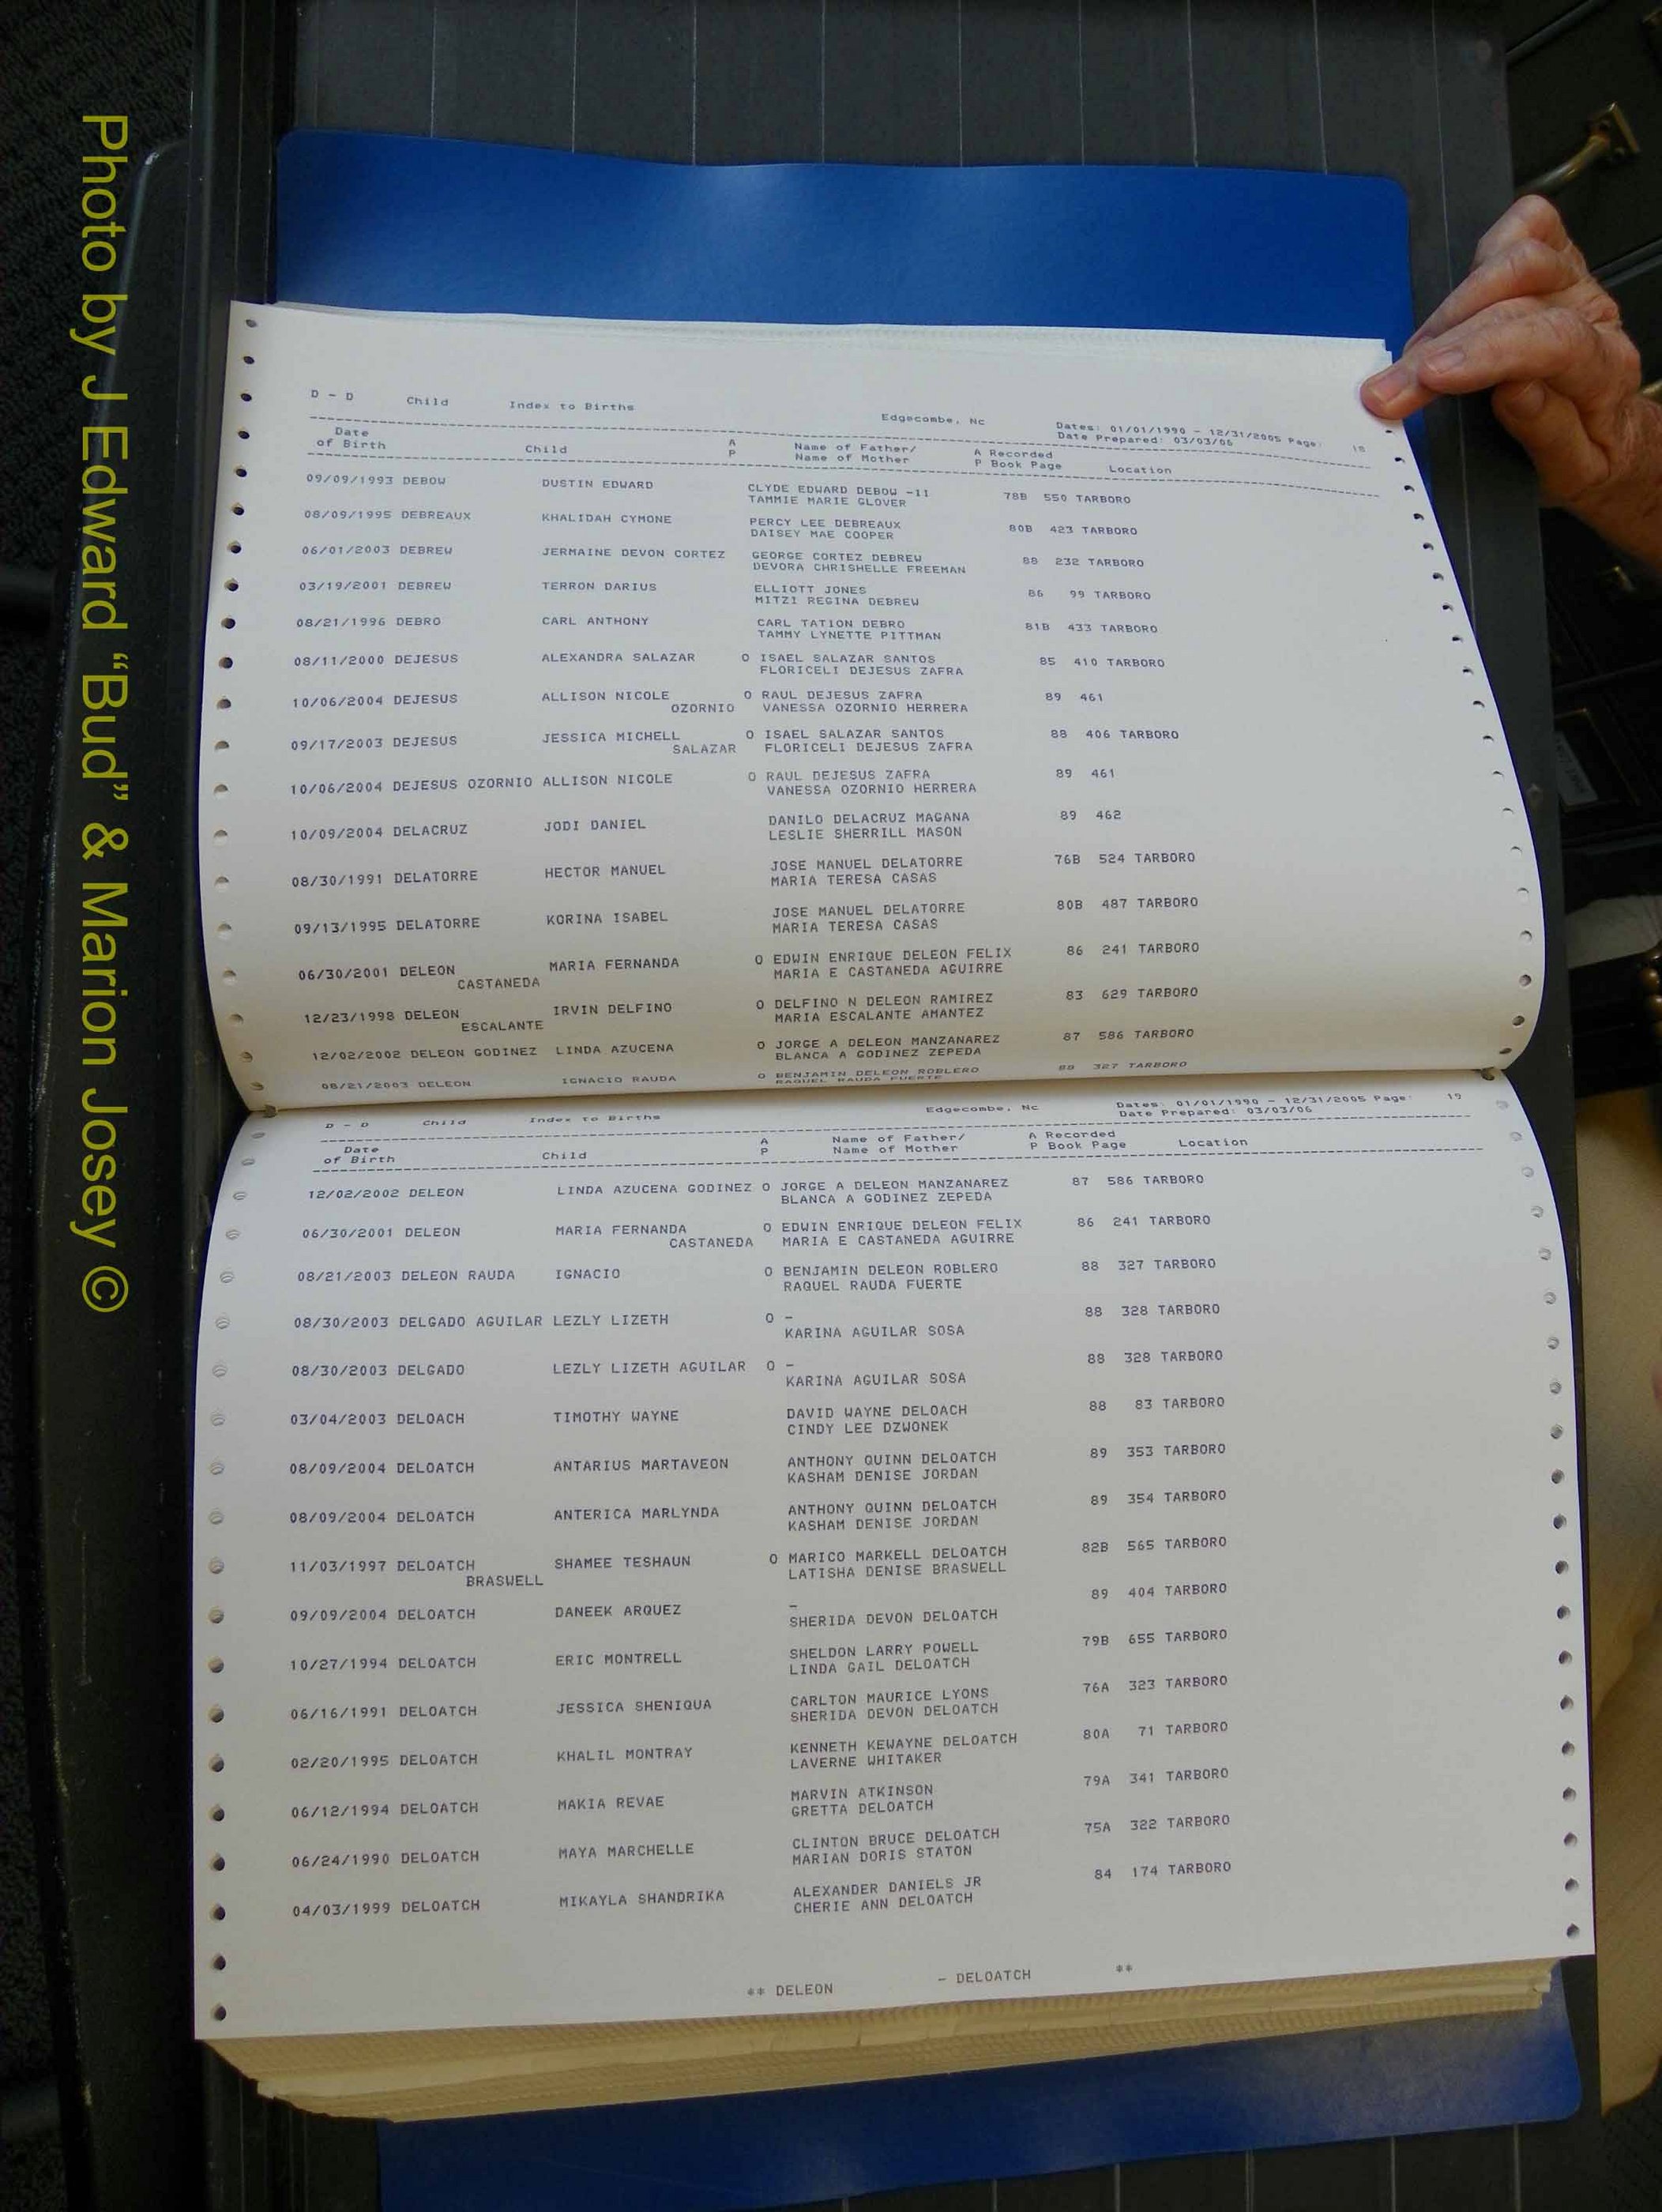 Photo by J Edward “Bud” & Marion Josey ©
D - D Child Index to Births Edgecombe, Nc Dates: 01/01/1990 - 12/31/2005 Page: 18
Date Prepared: 03/03/06
Date of Birth Child A P Name of Father/ Name of Mother A P Recorded Book Page Location
09/09/1993 DEBOW DUSTIN EDWARD CLYDE EDWARD DEBOW -11 78B 550 TARBORO
TAMMIE MARIE GLOVER
08/09/1995 DEBREAUX KHALIDAH CYMONE PERCY LEE DEBREAUX 80B 423 TARBORO
DAISEY MAE COOPER
06/01/2003 DEBREW JERMAINE DEVON CORTEZ GEORGE CORTEZ DEBREW 88 232 TARBORO
DEVORA CHRISHELLE FREEMAN
03/19/2001 DEBREW TERRON DARIUS ELLIOTT JONES 86 99 TARBORO
MITZI REGINA DEBREW
08/21/1996 DEBRO CARL ANTHONY CARL TATION DEBRO 81B 433 TARBORO
TAMMY LYNETTE PITTMAN
08/11/2000 DEJESUS ALEXANDRA SALAZAR O ISAEL SALAZAR SANTOS 85 410 TARBORO
FLORICELI DEJESUS ZAFRA
10/06/2004 DEJESUS ALLISON NICOLE O RAUL DEJESUS ZAFRA 89 461
OZORNIO VANESSA OZORNIO HERRERA
09/17/2003 DEJESUS JESSICA MICHELL O ISAEL SALAZAR SANTOS 88 406 TARBORO
SALAZAR FLORICELI DEJESUS ZAFRA
10/06/2004 DEJESUS OZORNIO ALLISON NICOLE O RAUL DEJESUS ZAFRA 89 461
VANESSA OZORNIO HERRERA
10/09/2004 DELACRUZ JODI DANIEL DANILO DELACRUZ MAGANA 89 462
LESLIE SHERRILL MASON
08/30/1991 DELATORRE HECTOR MANUEL JOSE MANUEL DELATORRE 76B 524 TARBORO
MARIA TERESA CASAS
09/13/1995 DELATORRE KORINA ISABEL JOSE MANUEL DELATORRE 80B 487 TARBORO
MARIA TERESA CASAS
06/30/2001 DELEON MARIA FERNANDA O EDWIN ENRIQUE DELEON FELIX 86 241 TARBORO
CASTANEDA MARIA E CASTANEDA AGUIRRE
12/23/1998 DELEON IRVIN DELFINO O DELFINO N DELEON RAMIREZ 83 629 TARBORO
ESCALANTE MARIA ESCALANTE AMANTEZ
12/02/2002 DELEON GODINEZ LINDA AZUCENA O JORGE A DELEON MANZANAREZ 87 586 TARBORO
BLANCA A GODINEZ ZEPEDA
08/21/2003 DELEON IGNACIO RAUDA O BENJAMIN DELEON ROBLERO 88 327 TARBORO
RAQUEL RAUDA FUERTE
D - D Child Index to Births Edgecombe, Nc Dates: 01/01/1990 - 12/31/2005 Page: 19
Date Prepared: 03/03/06
Date of Birth Child A P Name of Father/ Name of Mother A P Recorded Book Page Location
12/02/2002 DELEON LINDA AZUCENA GODINEZ O JORGE A DELEON MANZANAREZ 87 586 TARBORO
BLANCA A GODINEZ ZEPEDA
06/30/2001 DELEON MARIA FERNANDA O EDWIN ENRIQUE DELEON FELIX 86 241 TARBORO
CASTANEDA MARIA E CASTANEDA AGUIRRE
08/21/2003 DELEON RAUDA IGNACIO O BENJAMIN DELEON ROBLERO 88 327 TARBORO
RAQUEL RAUDA FUERTE
08/30/2003 DELGADO AGUILAR LEZLY LIZETH O - 88 328 TARBORO
KARINA AGUILAR SOSA
08/30/2003 DELGADO LEZLY LIZETH AGUILAR O - 88 328 TARBORO
KARINA AGUILAR SOSA
03/04/2003 DELOACH TIMOTHY WAYNE DAVID WAYNE DELOACH 88 83 TARBORO
CINDY LEE DZWONEK
08/09/2004 DELOATCH ANTARIUS MARTAVEON ANTHONY QUINN DELOATCH 89 353 TARBORO
KASHAM DENISE JORDAN
08/09/2004 DELOATCH ANTERICA MARLYNDA ANTHONY QUINN DELOATCH 89 354 TARBORO
KASHAM DENISE JORDAN
11/03/1997 DELOATCH SHAMEE TESHAUN O MARICO MARKELL DELOATCH 82B 565 TARBORO
BRASWELL LATISHA DENISE BRASWELL
09/09/2004 DELOATCH DANEEK ARQUEZ - 89 404 TARBORO
SHERIDA DEVON DELOATCH
10/27/1994 DELOATCH ERIC MONTRELL SHELDON LARRY POWELL 79B 655 TARBORO
LINDA GAIL DELOATCH
06/16/1991 DELOATCH JESSICA SHENIQUA CARLTON MAURICE LYONS 76A 323 TARBORO
SHERIDA DEVON DELOATCH
02/20/1995 DELOATCH KHALIL MONTRAY KENNETH KEWAYNE DELOATCH 80A 71 TARBORO
LAVERNE WHITAKER
06/12/1994 DELOATCH MAKIA REVAE MARVIN ATKINSON 79A 341 TARBORO
GRETTA DELOATCH
06/24/1990 DELOATCH MAYA MARCHELLE CLINTON BRUCE DELOATCH 75A 322 TARBORO
MARIAN DORIS STATON
04/03/1999 DELOATCH MIKAYLA SHANDRIKA ALEXANDER DANIELS JR 84 174 TARBORO
CHERIE ANN DELOATCH
** DELEON - DELOATCH **